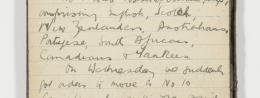 comprising English, Scotch,
New Zealanders, Australians,
Portugese, South Africans,
Canadians & Yankees
On Wednesday we suddenly
got orders to move to No 10